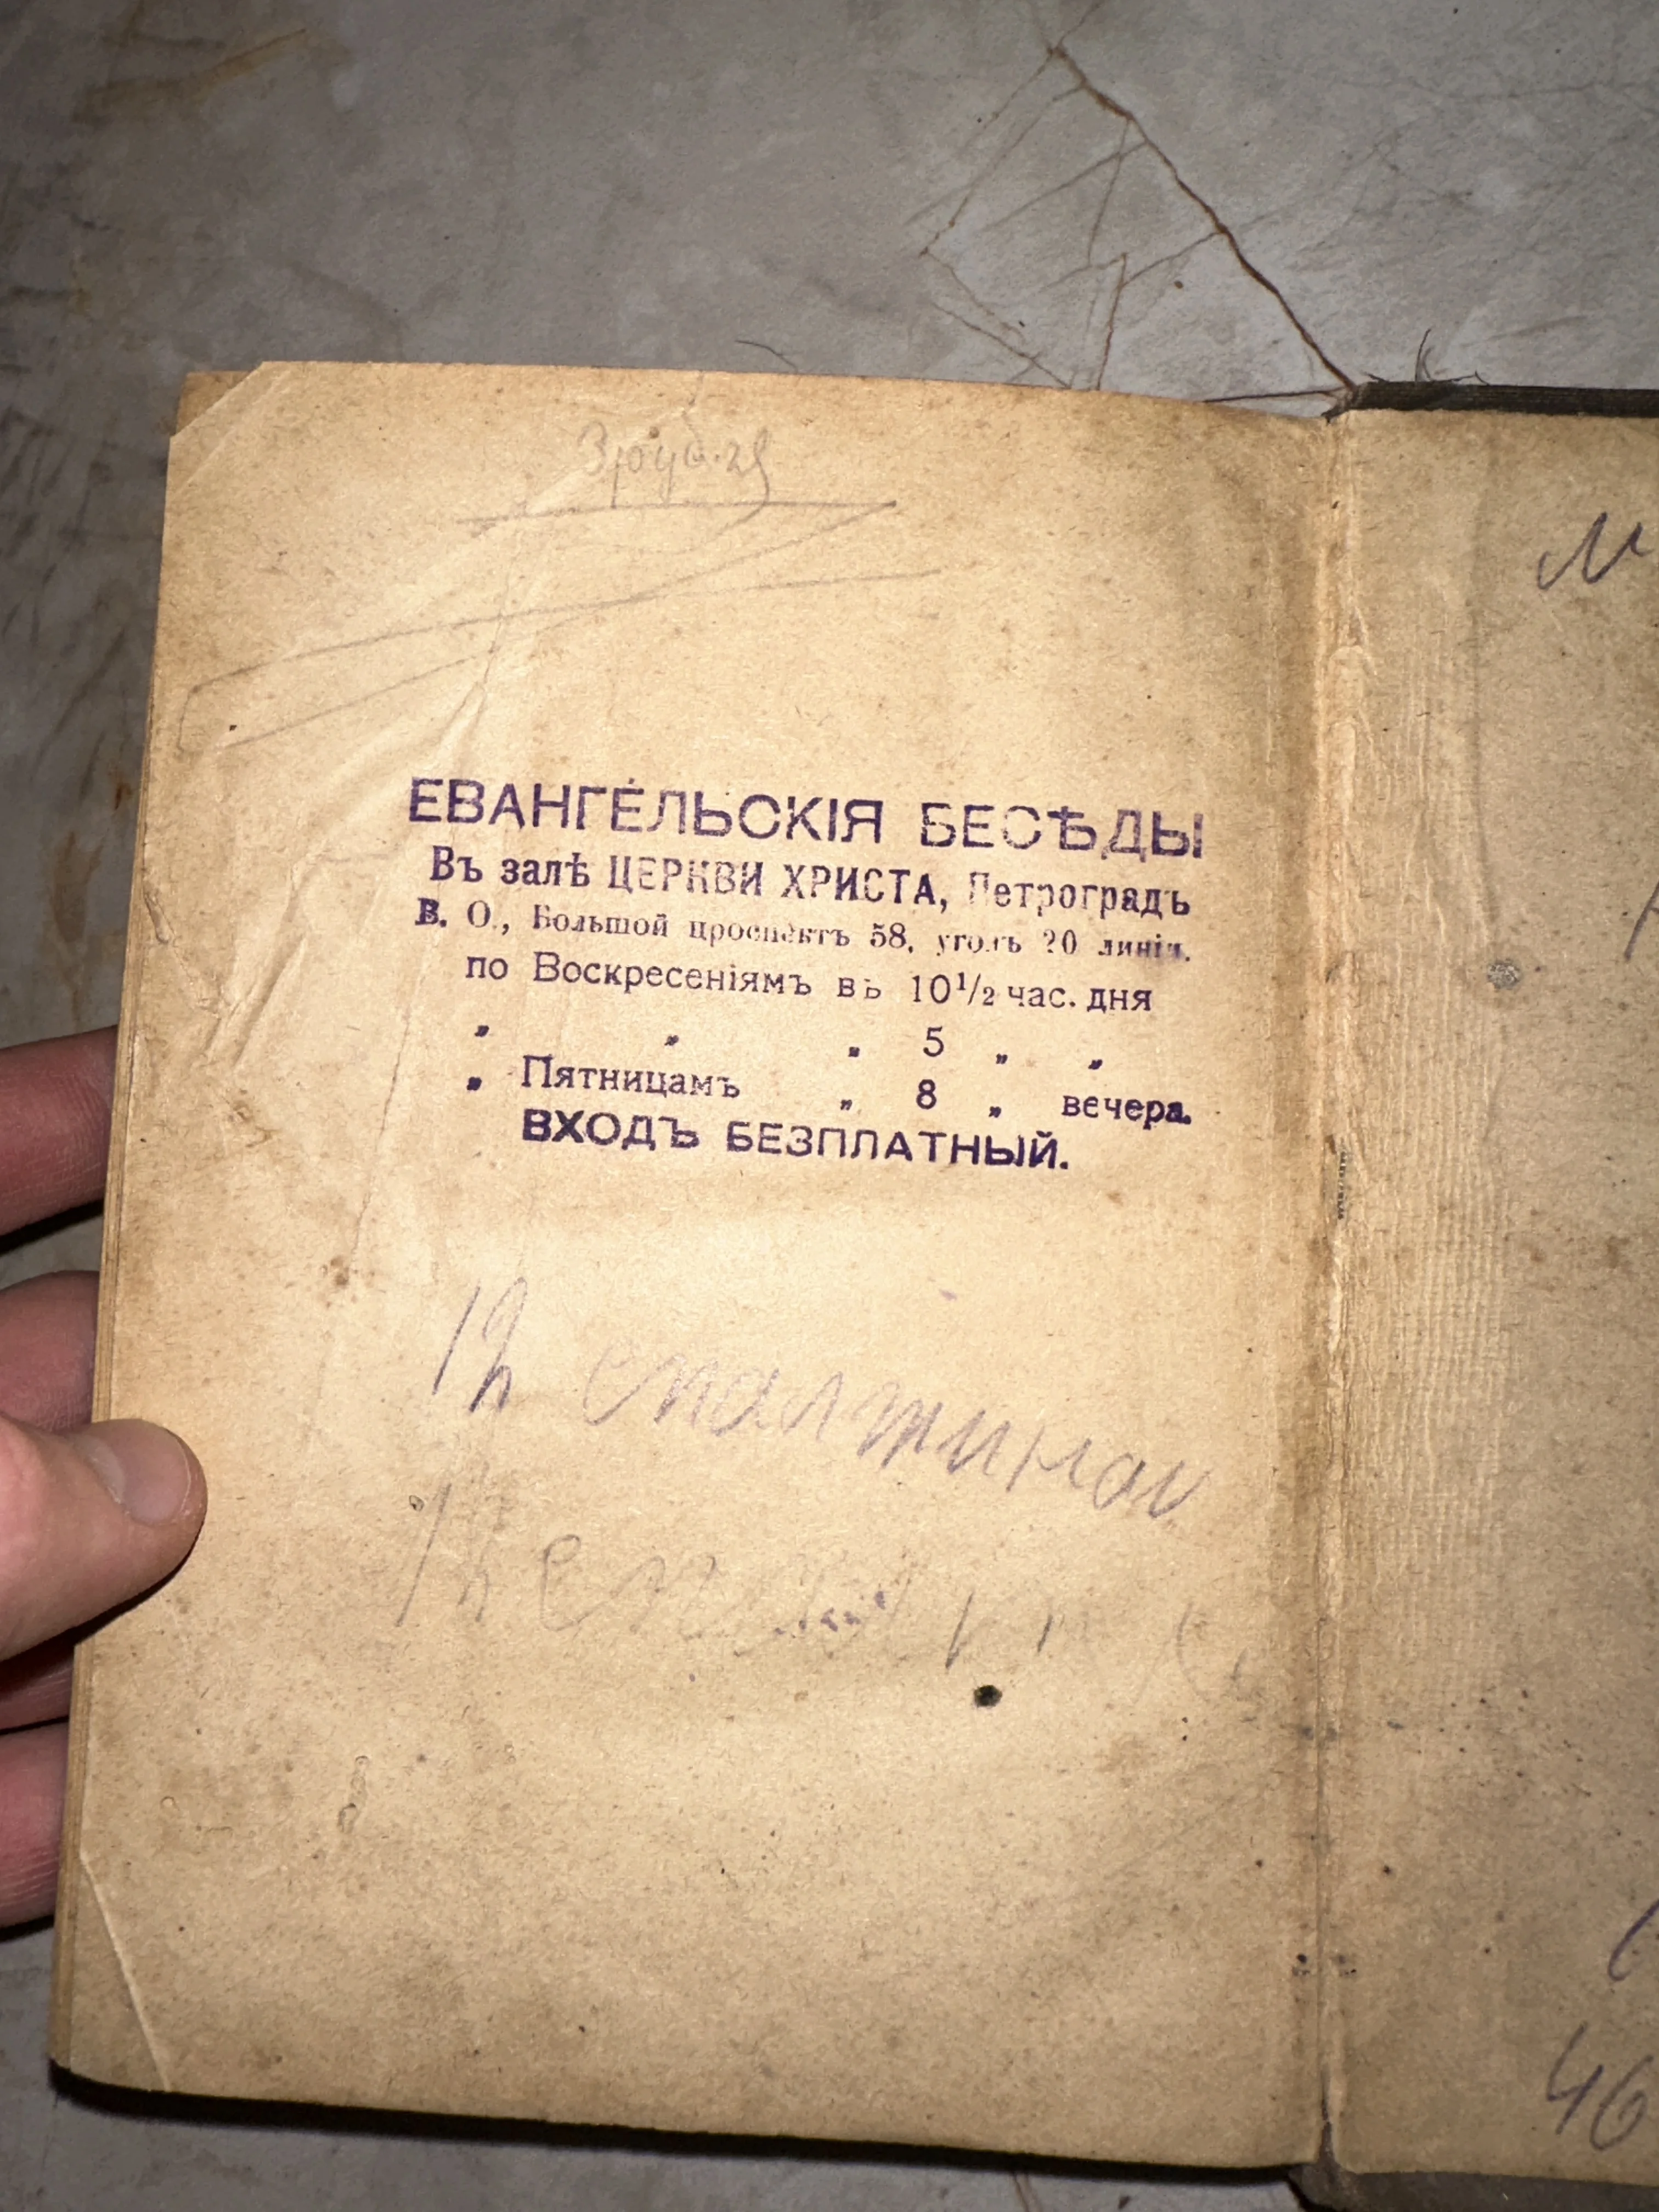 3 рубля
ЕВАНГЕЛЬСКІЯ БЕСѢДЫ
Въ залѣ ЦЕРКВИ ХРИСТА, Петроградъ
В. О., Большой проспектъ 58, уголъ 20 линіи.
по Воскресеніямъ въ 10 1/2 час. дня
„ „ „ 5 „ „
„ Пятницамъ „ 8 „ вечера.
ВХОДЪ БЕЗПЛАТНЫЙ.
46